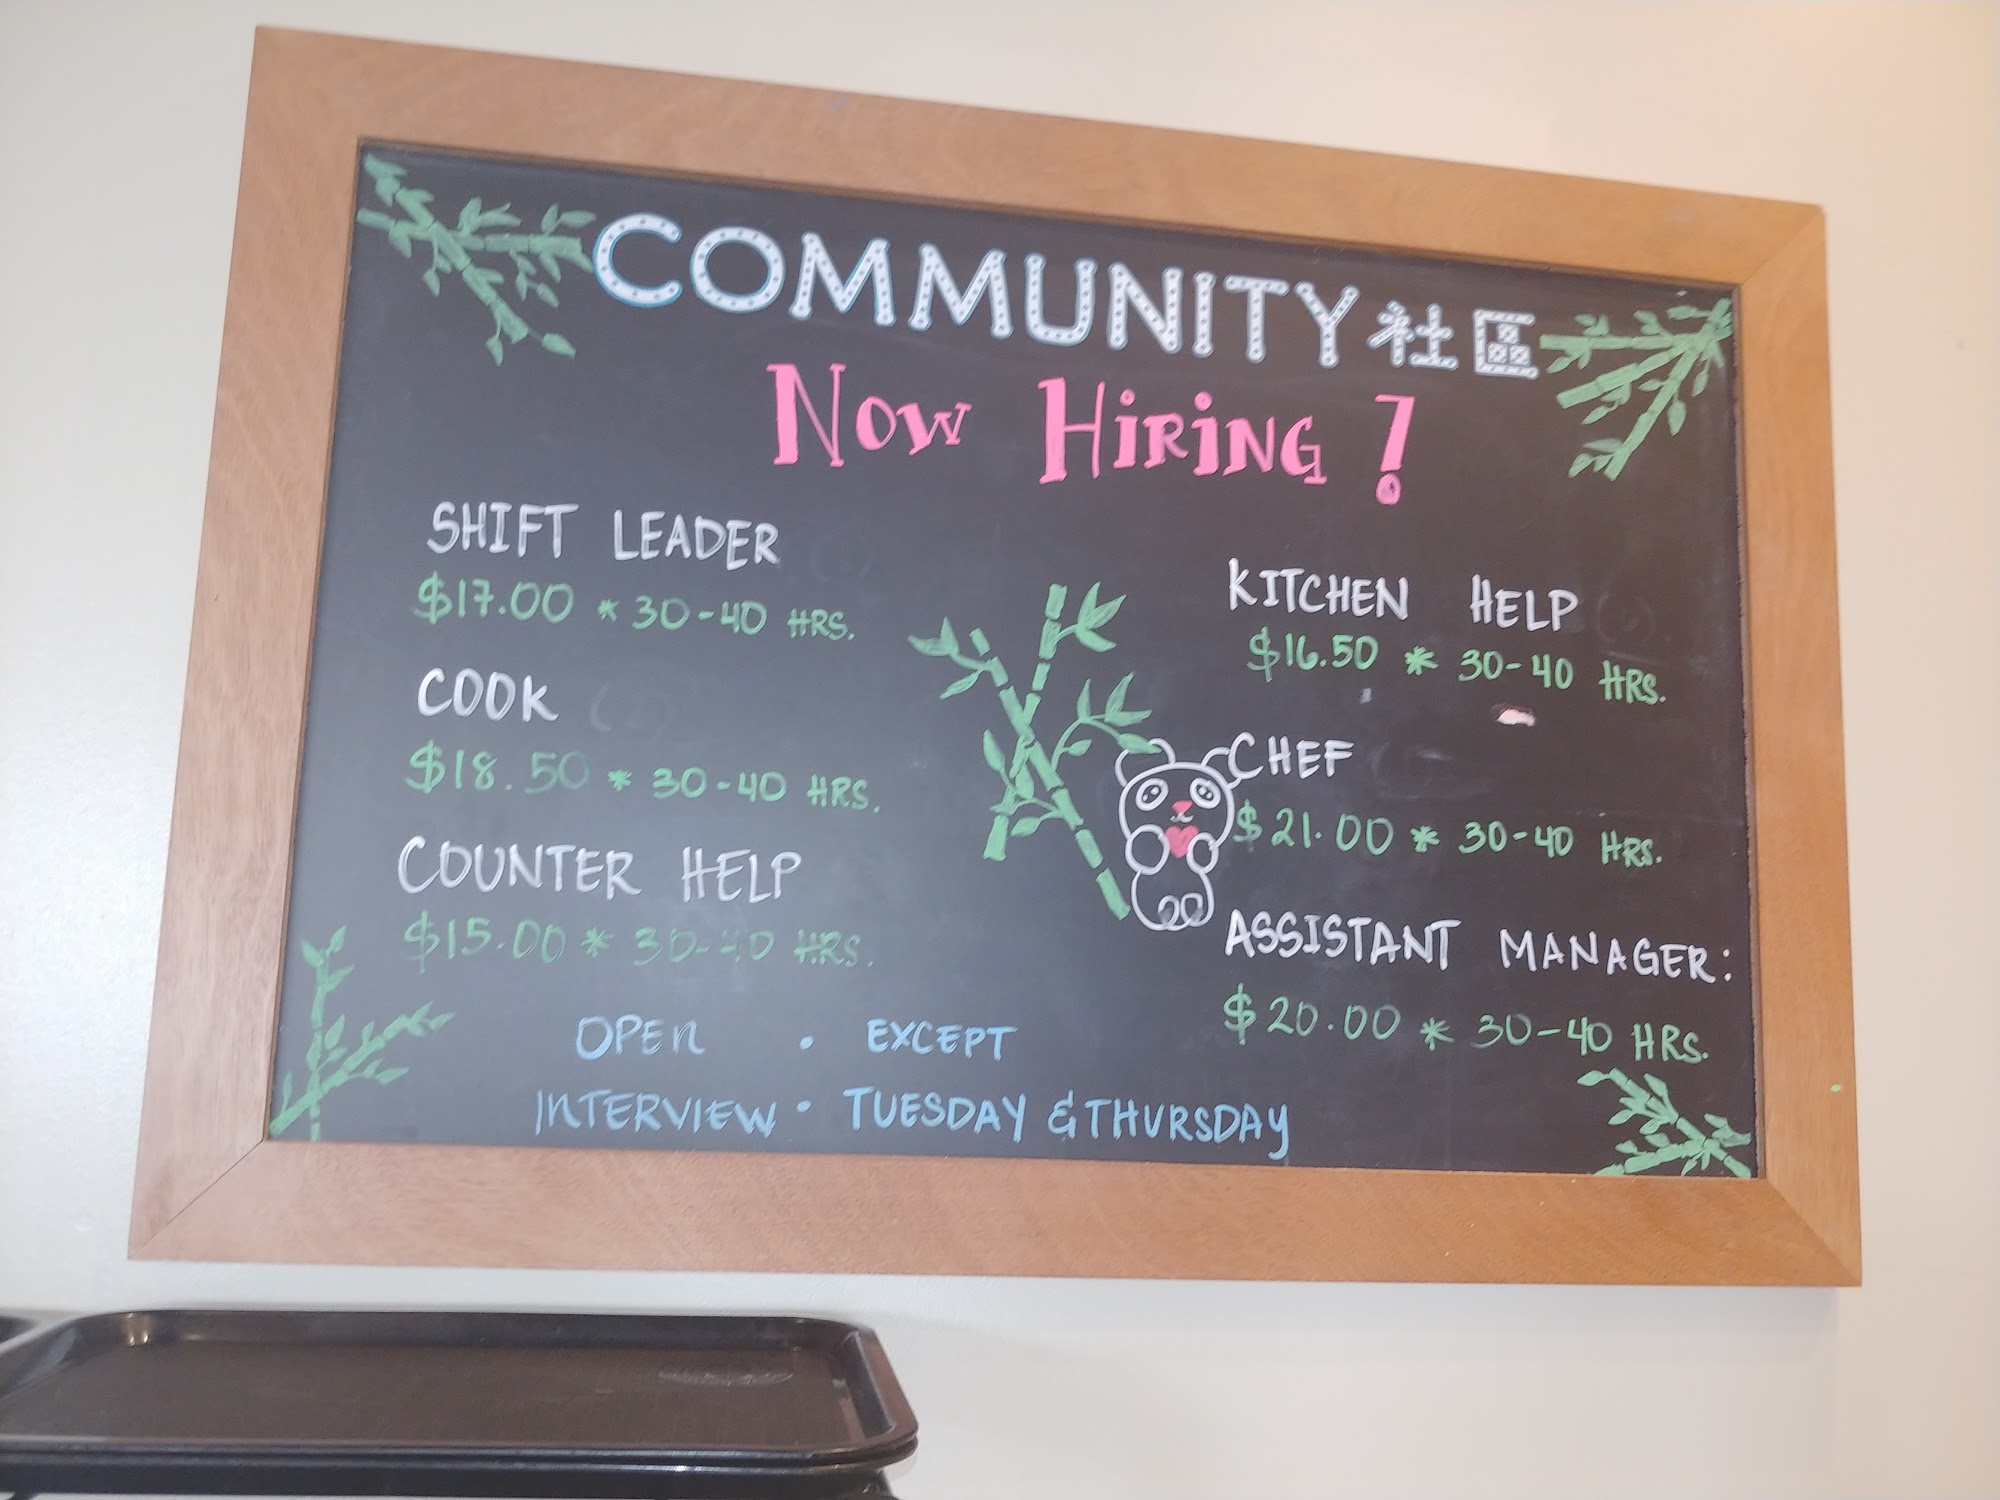 COMMUNITY 社區
NOW HIRING!
SHIFT LEADER
$17.00 * 30-40 HRS.
COOK
$18.50 * 30-40 HRS.
COUNTER HELP
$15.00 * 30-40 HRS.
KITCHEN HELP
$16.50 * 30-40 HRS.
CHEF
$21.00 * 30-40 HRS.
ASSISTANT MANAGER:
$20.00 * 30-40 HRS.
OPEN • EXCEPT
INTERVIEW • TUESDAY & THURSDAY